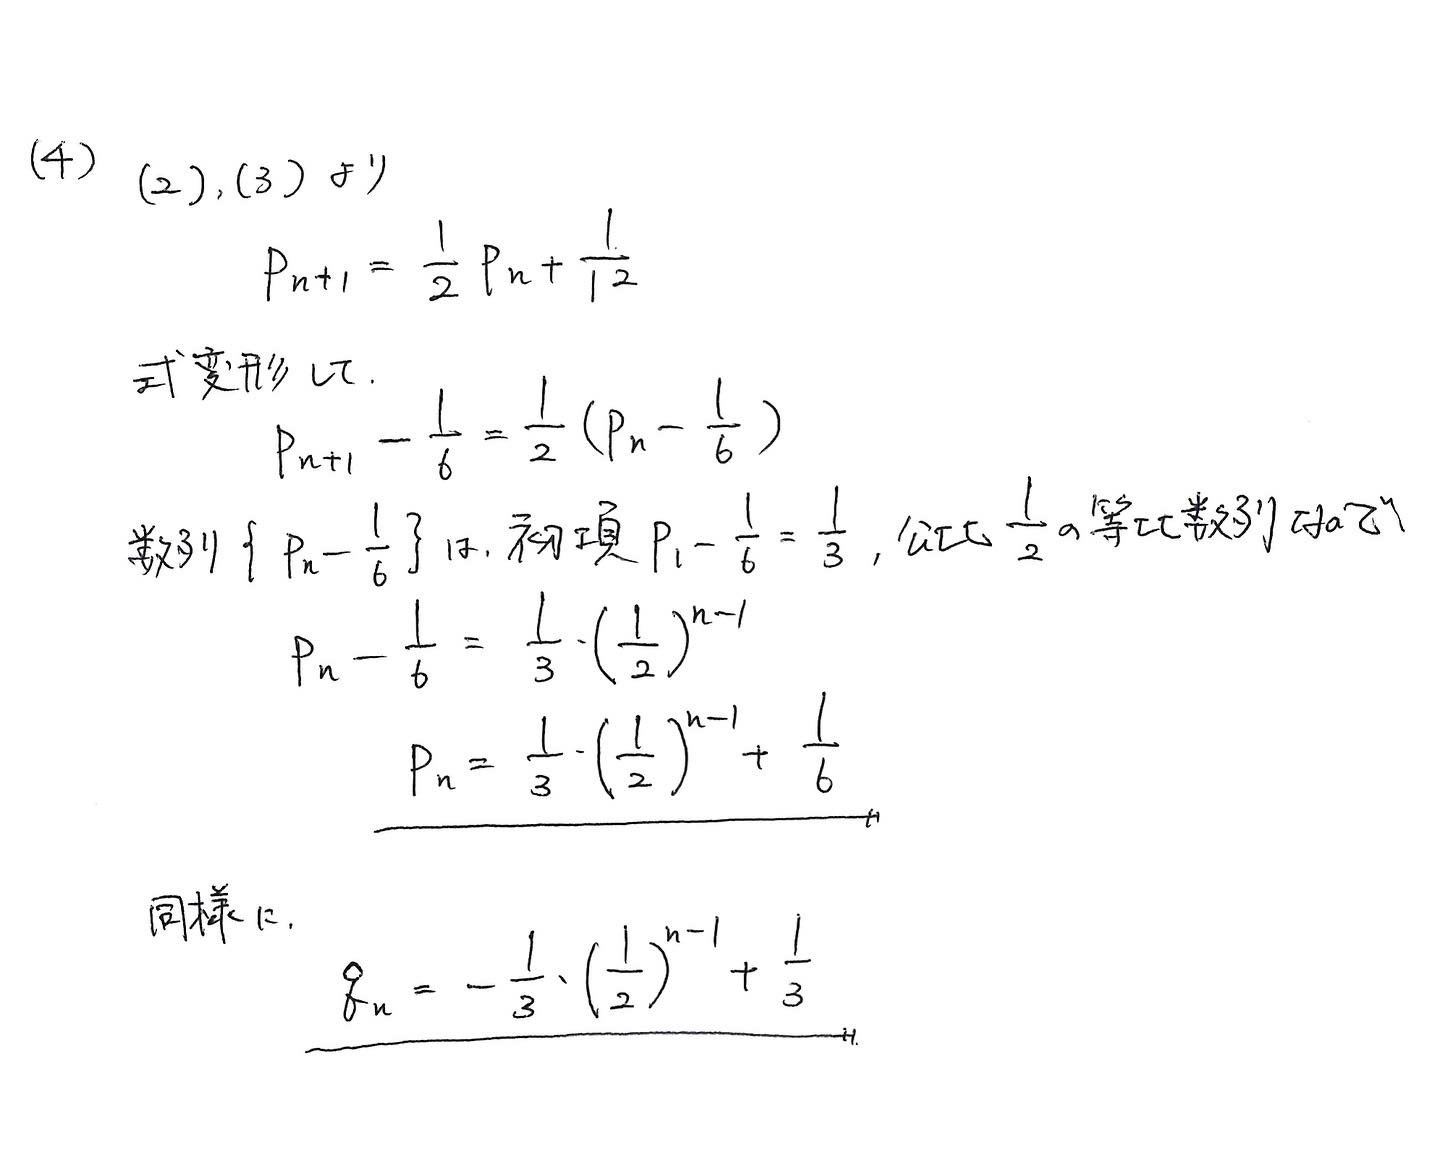 (4) (2), (3) より
p_{n+1} = \frac{1}{2} p_n + \frac{1}{12}
式変形して.
p_{n+1} - \frac{1}{6} = \frac{1}{2} (p_n - \frac{1}{6})
数列 { p_n - \frac{1}{6} } は, 初項 p_1 - \frac{1}{6} = \frac{1}{3}, 公比 \frac{1}{2} の等比数列なので
p_n - \frac{1}{6} = \frac{1}{3} · (\frac{1}{2})^{n-1}
p_n = \frac{1}{3} · (\frac{1}{2})^{n-1} + \frac{1}{6}
同様に.
q_n = - \frac{1}{3} · (\frac{1}{2})^{n-1} + \frac{1}{3}